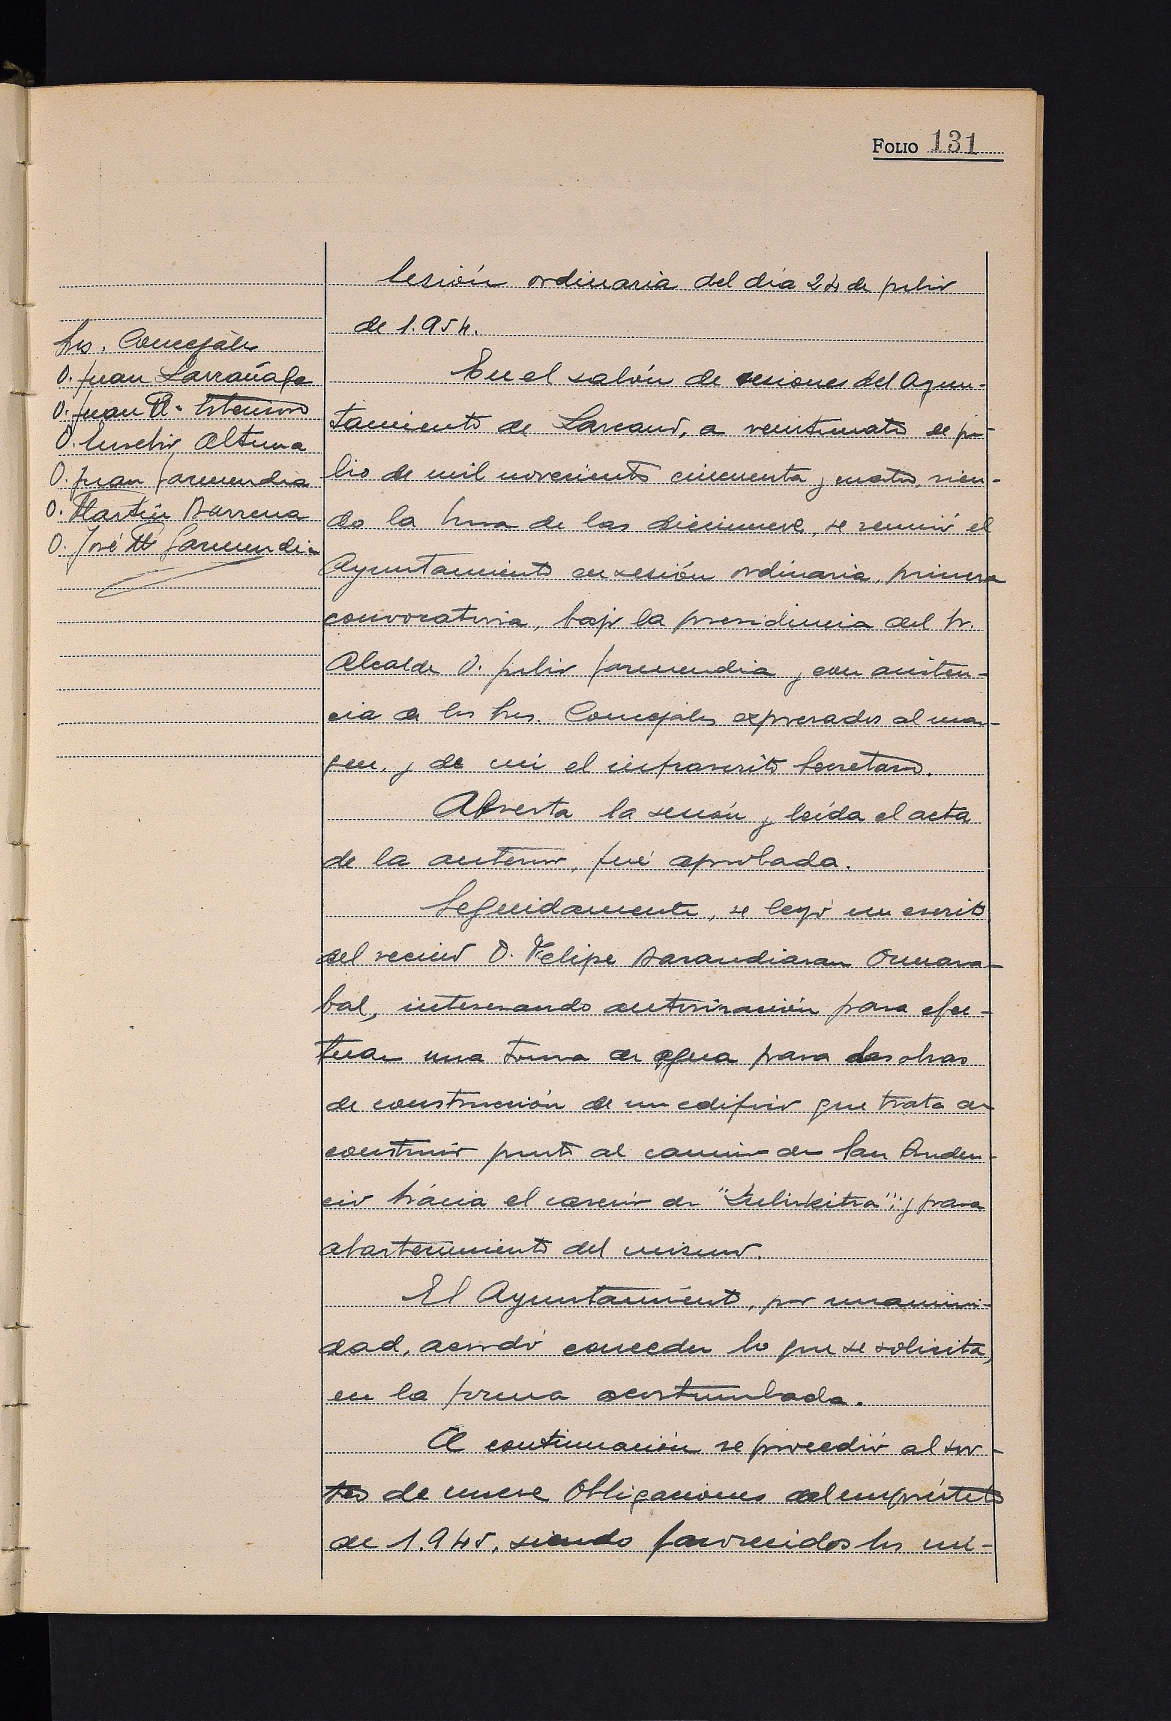 FOLIO 131
Sesión ordinaria del dia 24 de julio
de 1.954.
Sres. Concejales
D. Juan Larrañaga
D. Juan
D. Eusebio Altuna
D. Juan Garmendia
D. Martín Barrena
D. José Mª Garmendia
En el salón de sesiones del Ayun-
tamiento de Lazcano, a veinticuatro de ju-
lio de mil novecientos cincuenta y cuatro, sien-
do la hora de las diecinueve, se reunió el
Ayuntamiento en sesión ordinaria, primera
convocatoria, bajo la presidencia del Sr.
Alcalde D. Julio Garmendia y con asisten-
cia de los Sres. Concejales expresados al mar-
gen, y de mi el infrascrito Secretario.
Abierta la sesión y leída el acta
de la anterior, fué aprobada.
Seguidamente, se leyó un escrito
del vecino D. Felipe Barandiaran
interesando autorización para efec-
tuar una toma de agua para las obras
de construcción de un edificio que trata de
construir junto al camino de San Pruden-
cio hácia el caserio de "Zubizkitza"; y para
abastecimiento del mismo.
El Ayuntamiento, por unanimi-
dad, acordó conceder lo que se solicita,
en la forma acostumbrada.
A continuación se procedió al sor-
teo de nueve Obligaciones del empréstito
de 1.945, siendo favorecidos los nú-